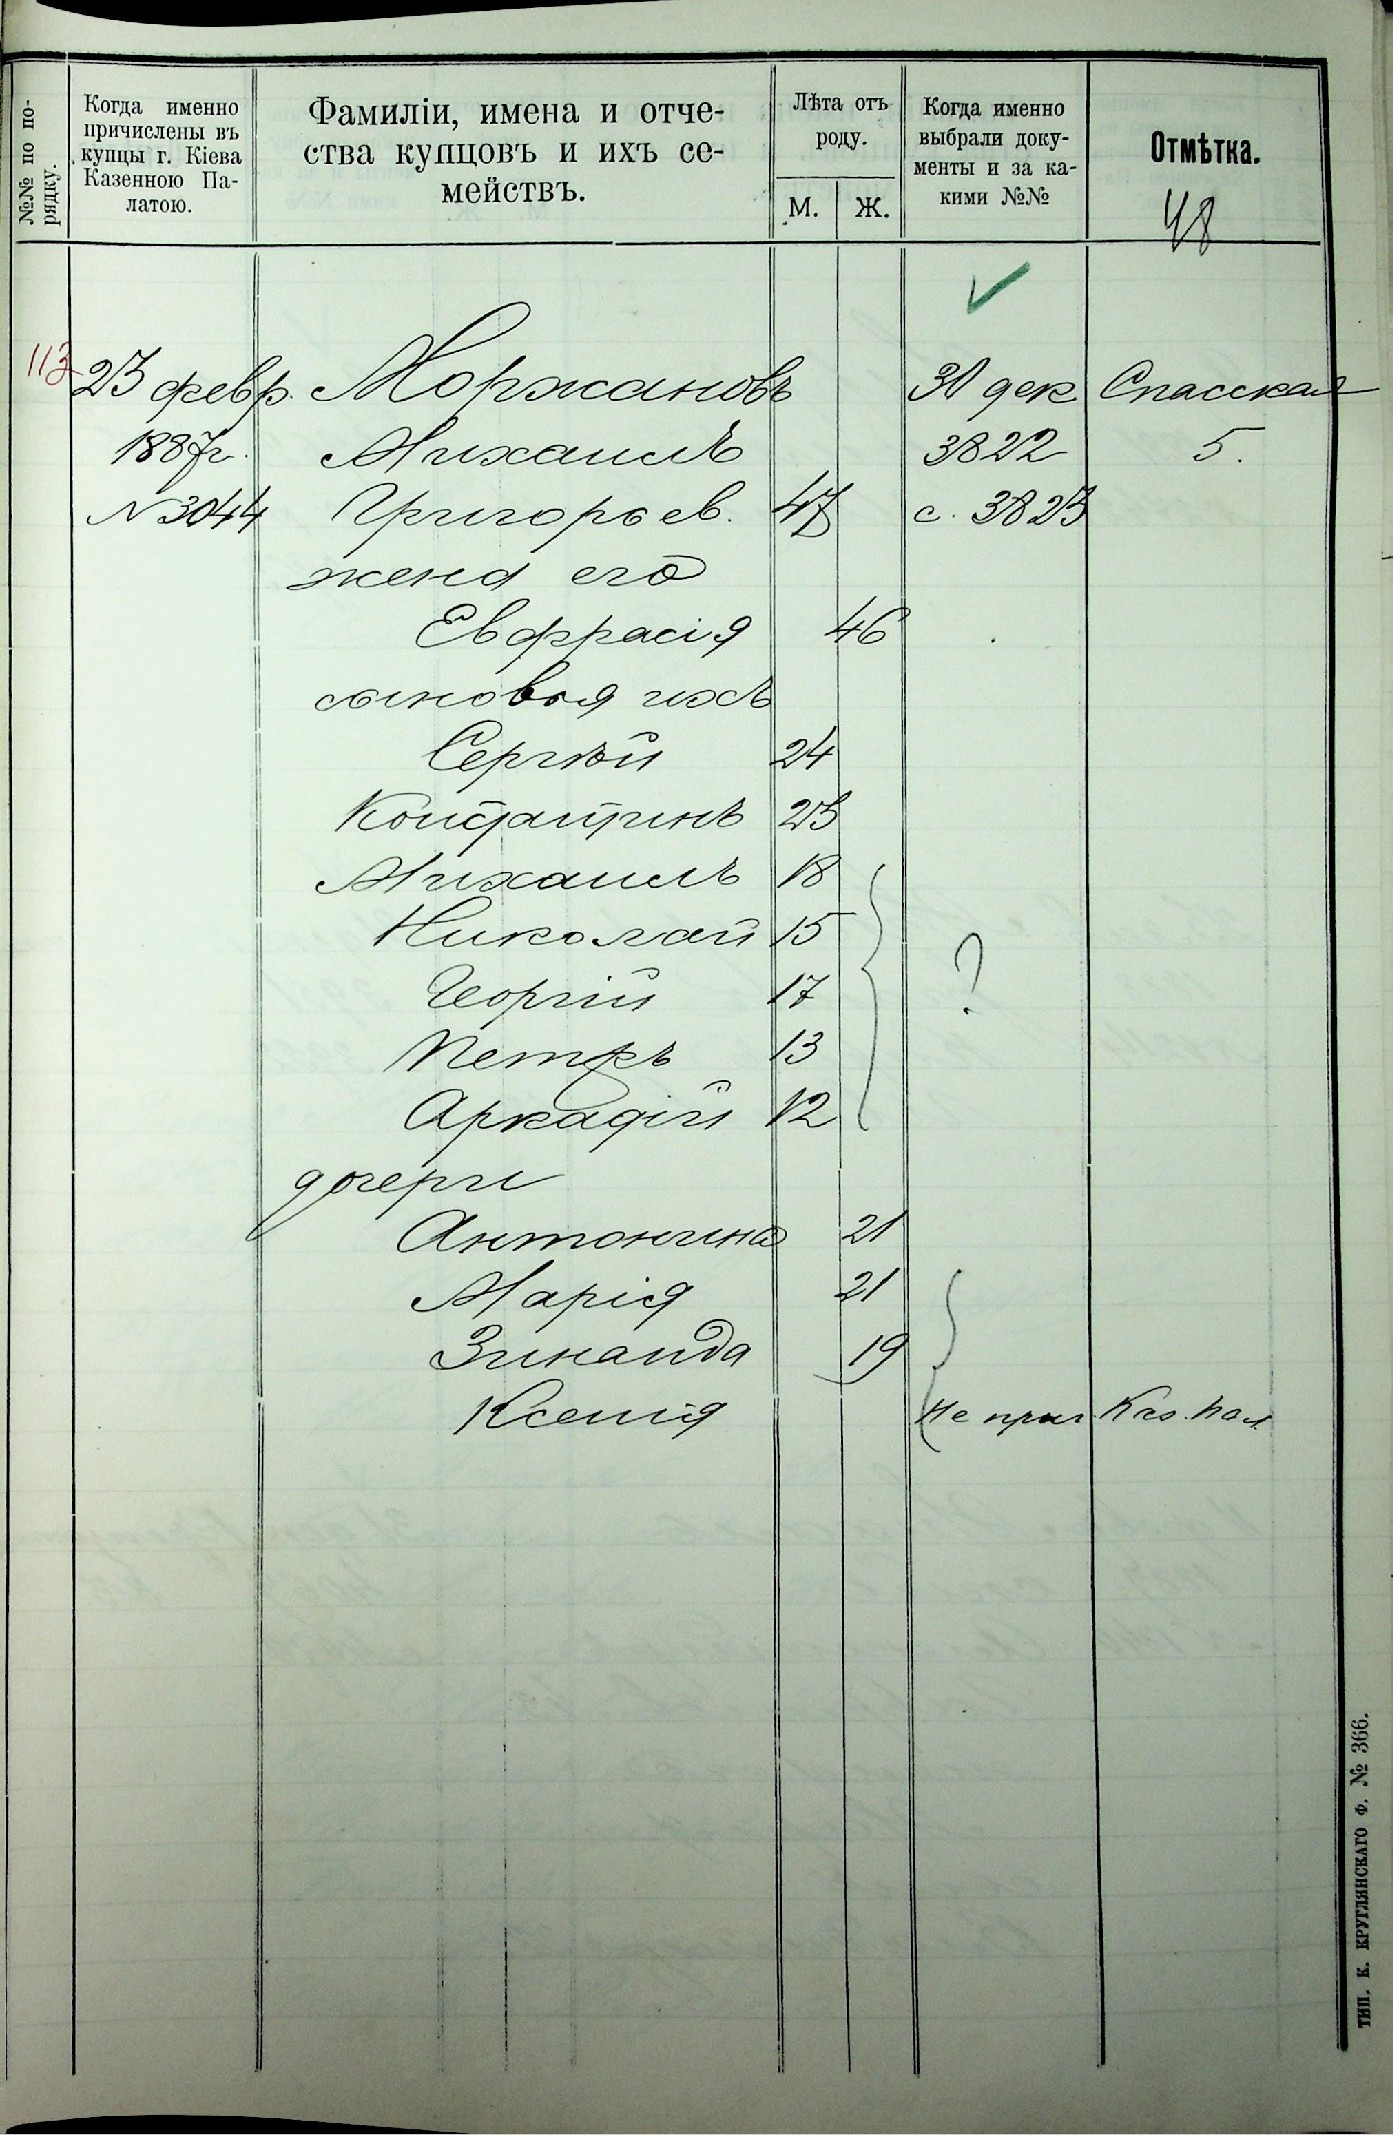 №№ по по-
рядку.
Когда именно
причислены въ
купцы г. Кіева
Казенною Па-
латою.
Фамиліи, имена и отче-
ства купцовъ и ихъ се-
мействъ.
Лѣта отъ
роду.
М. Ж.
Когда именно
выбрали доку-
менты и за ка-
кими №№
Отмѣтка.
48
113 23 февр. Моржановъ 31 дек Спасская
1887 г. Михаилъ 3822 5.
N 3044 Григорьев. 47 с. 3823
жена его
Евфрасія 46
сыновья ихъ
Сергѣй 24
Константинъ 23
Михаилъ 18
Николай 15
?
Георгій 17
Петръ 13
Аркадій 12
дочери
Антонина 21
Марія 21
Зинаида 19
Ксенія не прич Каз. Пал
ТИП. К. КРУГЛЯНСКАГО Ф. № 366.